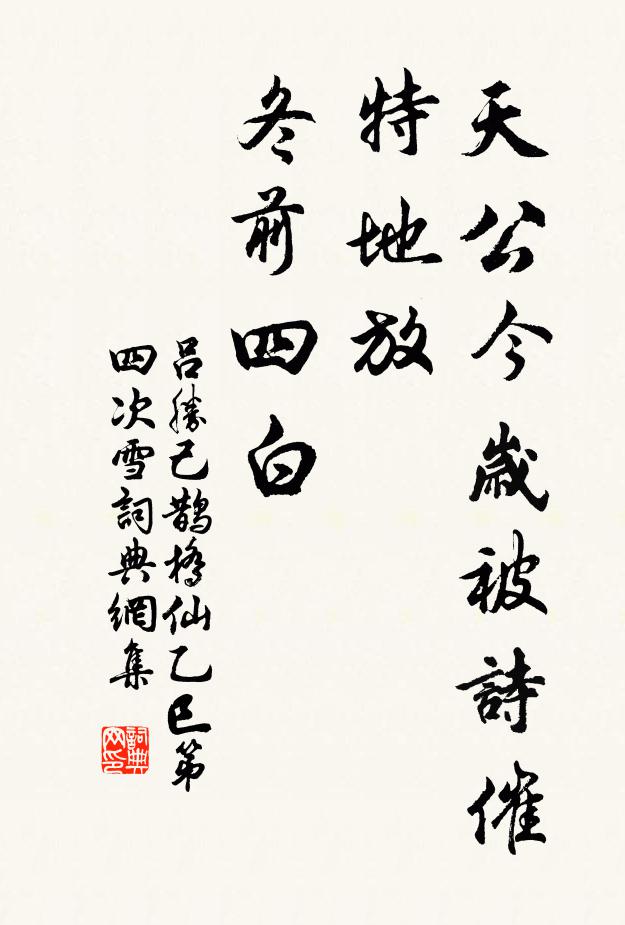 天公今歲被詩催
特地放
冬前四白
呂勝己鵲橋仙乙巳第
四次雪詞典網集
詞典网印